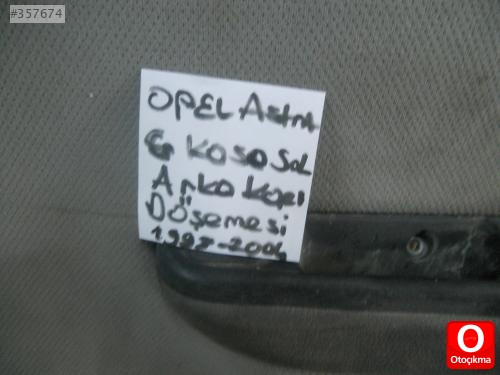 #357674
OPEL Astra
G KASA SOL
Arka Kapı
Döşemesi
1998-2004
O
Otoçıkma